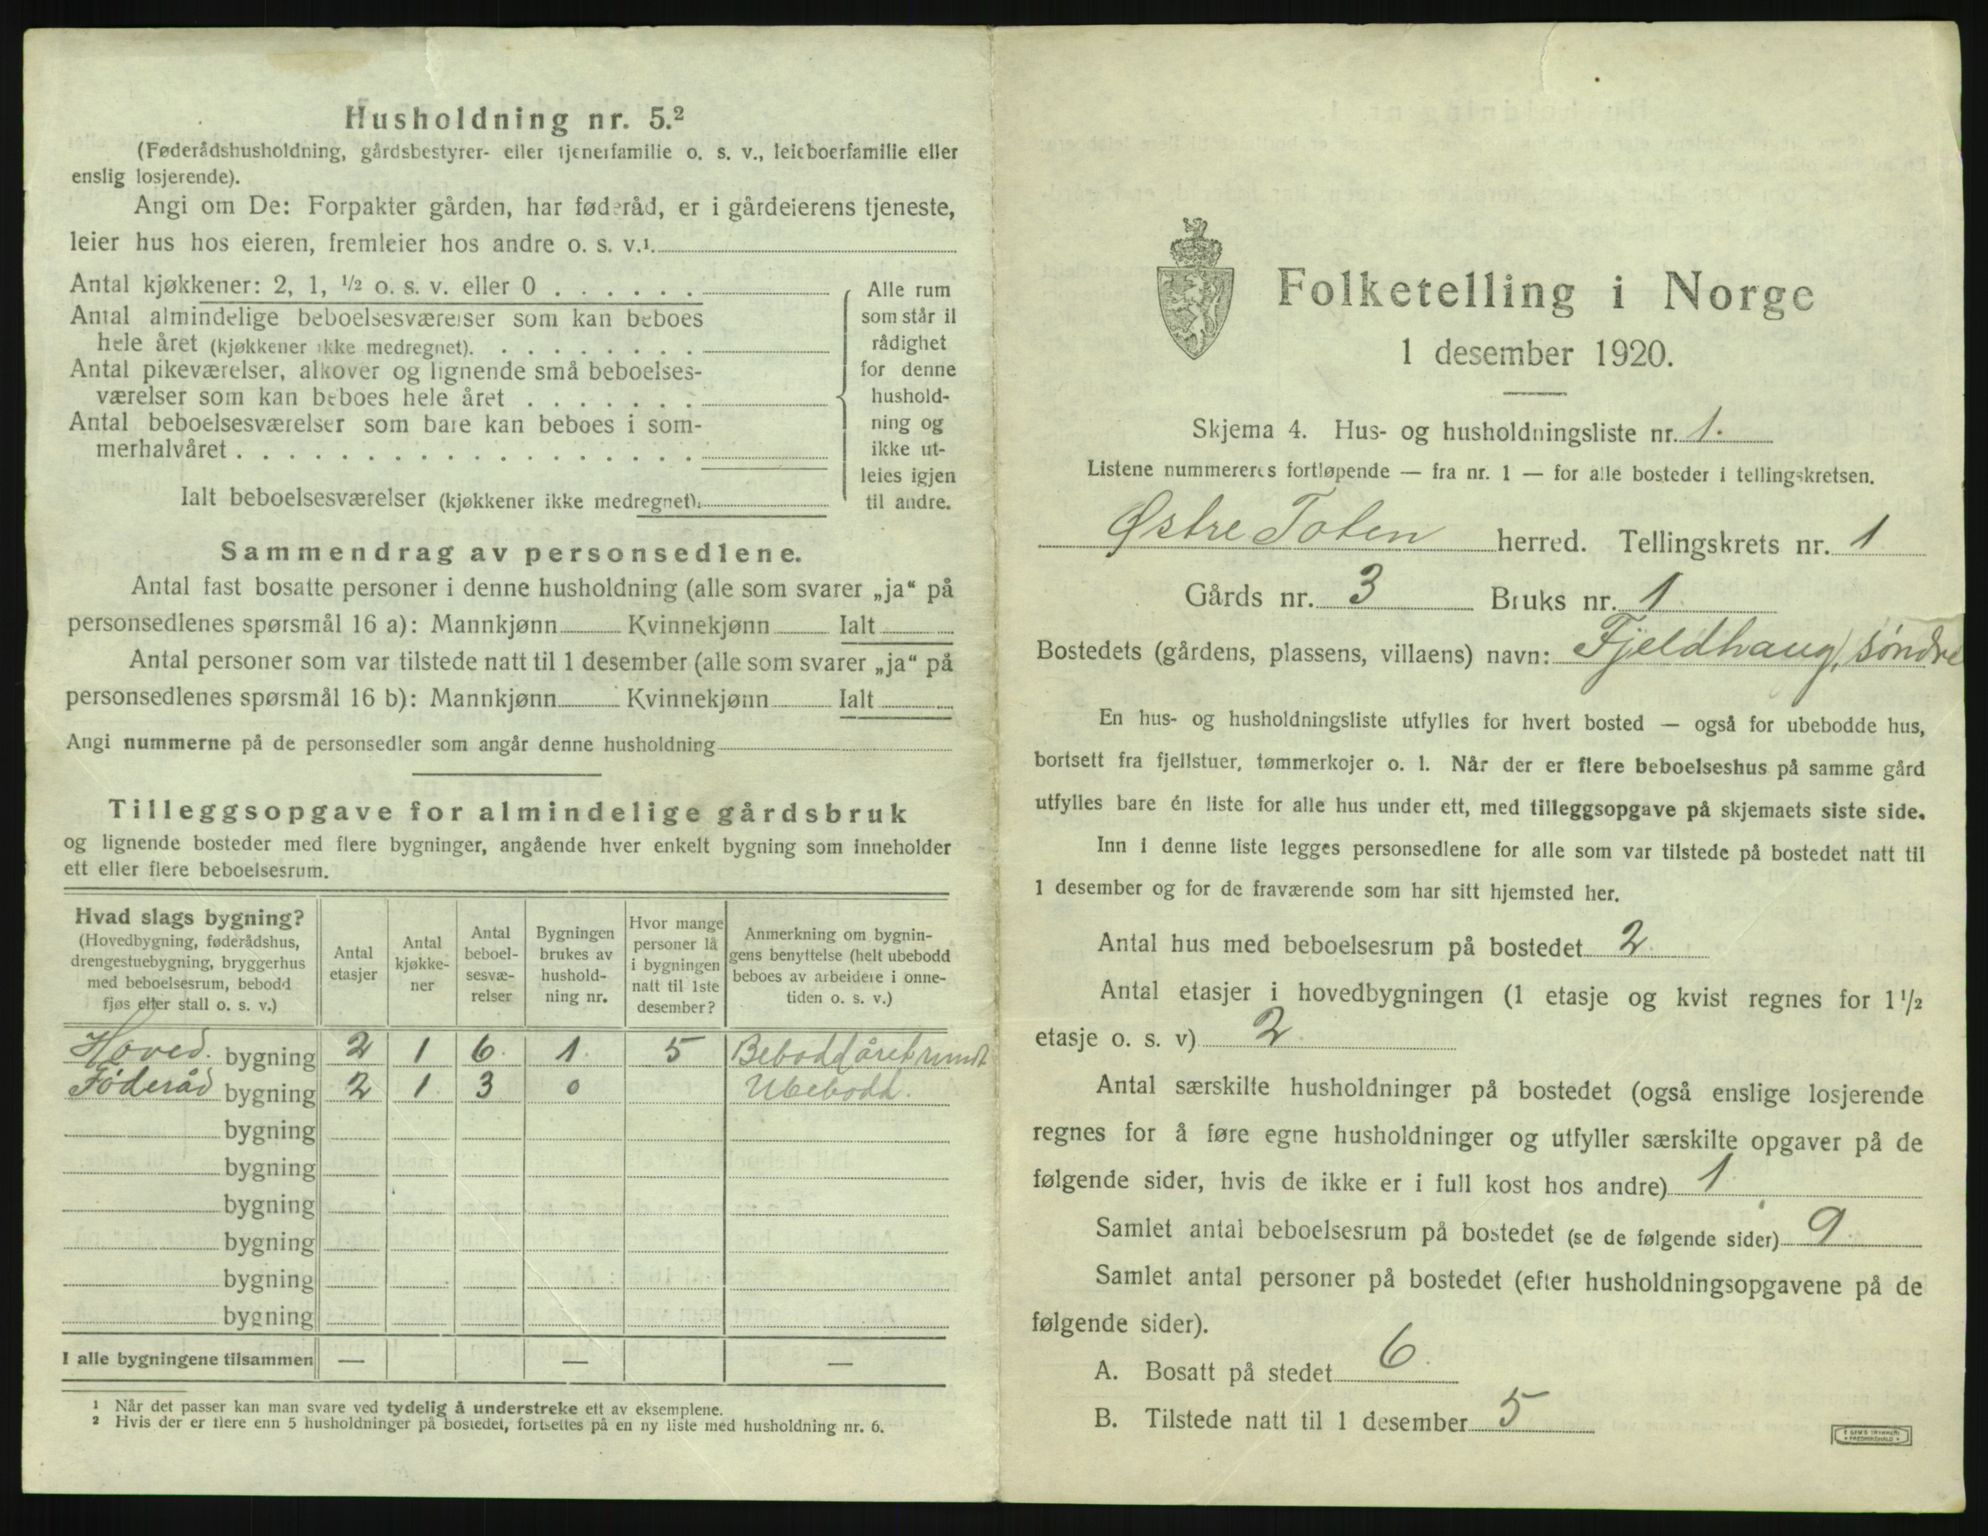 Husholdning nr. 5.²
(Føderådshusholdning, gårdsbestyrer- eller tjenerfamilie o. s. v., leieboerfamilie eller
enslig losjerende).
Angi om De: Forpakter gården, har føderåd, er i gårdeierens tjeneste,
leier hus hos eieren, fremleier hos andre o. s. v.¹
Antal kjøkkener: 2, 1, ½ o. s. v. eller 0 . . . . . .
Antal almindelige beboelsesværelser som kan beboes
hele året (kjøkkener ikke medregnet). . . . . . . . .
Antal pikeværelser, alkover og lignende små beboelses-
værelser som kan beboes hele året . . . . . . .
Antal beboelsesværelser som bare kan beboes i som-
merhalvåret . . . . . . . . . . . . . . . . . .
Ialt beboelsesværelser (kjøkkener ikke medregnet):
Alle rum
som står il
rådighet
for denne
hushold-
ning og
ikke ut-
leies igjen
til andre.
Sammendrag av personsedlene.
Antal fast bosatte personer i denne husholdning (alle som svarer „ja“ på
personsedlenes spørsmål 16 a): Mannkjønn Kvinnekjønn Ialt
Antal personer som var tilstede natt til 1 desember (alle som svarer „ja“ på
personsedlenes spørsmål 16 b): Mannkjønn Kvinnekjønn Ialt
Angi nummerne på de personsedler som angår denne husholdning
Tilleggsopgave for almindelige gårdsbruk
og lignende bosteder med flere bygninger, angående hver enkelt bygning som inneholder
ett eller flere beboelsesrum.
Hvad slags bygning?
(Hovedbygning, føderådshus,
drengestuebygning, bryggerhus
med beboelsesrum, bebodd
fjøs efter stall o. s. v.)
Antal
etasjer
Antal
kjøkke-
ner
Antal
beboel-
sesvæ-
relser
Bygningen
brukes av
hushold-
ning nr.
Hvor mange
personer lå
i bygningen
natt til 1ste
desember?
Anmerkning om bygnin-
gens benyttelse (helt ubebodd
beboes av arbeidere i onne-
tiden o. s. v.)
Hoved. bygning 2 1 6. 1. 5 Bebodd året rundt
Føderåd bygning 2 1. 3 0 Ubebodd.
bygning
bygning
bygning
bygning
bygning
bygning
I alle bygningene tilsammen — — —
¹ Når det passer kan man svare ved tydelig å understreke ett av eksemplene.
² Hvis der er flere enn 5 husholdninger på bostedet, fortsettes på en ny liste med husholdning nr. 6.
Folketelling i Norge
1 desember 1920.
Skjema 4. Hus- og husholdningsliste nr. 1.
Listene nummereres fortløpende — fra nr. 1 — for alle bosteder i tellingskretsen.
Østre Toten herred. Tellingskrets nr. 1
Gårds nr. 3 Bruks nr. 1
Bostedets (gårdens, plassens, villaens) navn: Fjeldhaug, søndre
En hus- og husholdningsliste utfylles for hvert bosted — også for ubebodde hus,
bortsett fra fjellstuer, tømmerkojer o. l. Når der er flere beboelseshus på samme gård
utfylles bare én liste for alle hus under ett, med tilleggsopgave på skjemaets siste side.
Inn i denne liste legges personsedlene for alle som var tilstede på bostedet natt til
1 desember og for de fraværende som har sitt hjemsted her.
Antal hus med beboelsesrum på bostedet 2.
Antal etasjer i hovedbygningen (1 etasje og kvist regnes for 1½
etasje o. s. v) 2.
Antal særskilte husholdninger på bostedet (også enslige losjerende
regnes for å føre egne husholdninger og utfyller særskilte opgaver på de
følgende sider, hvis de ikke er i full kost hos andre) 1
Samlet antal beboelsesrum på bostedet (se de følgende sider) 9
Samlet antal personer på bostedet (efter husholdningsopgavene på de
følgende sider).
A. Bosatt på stedet 6.
B. Tilstede natt til 1 desember 5